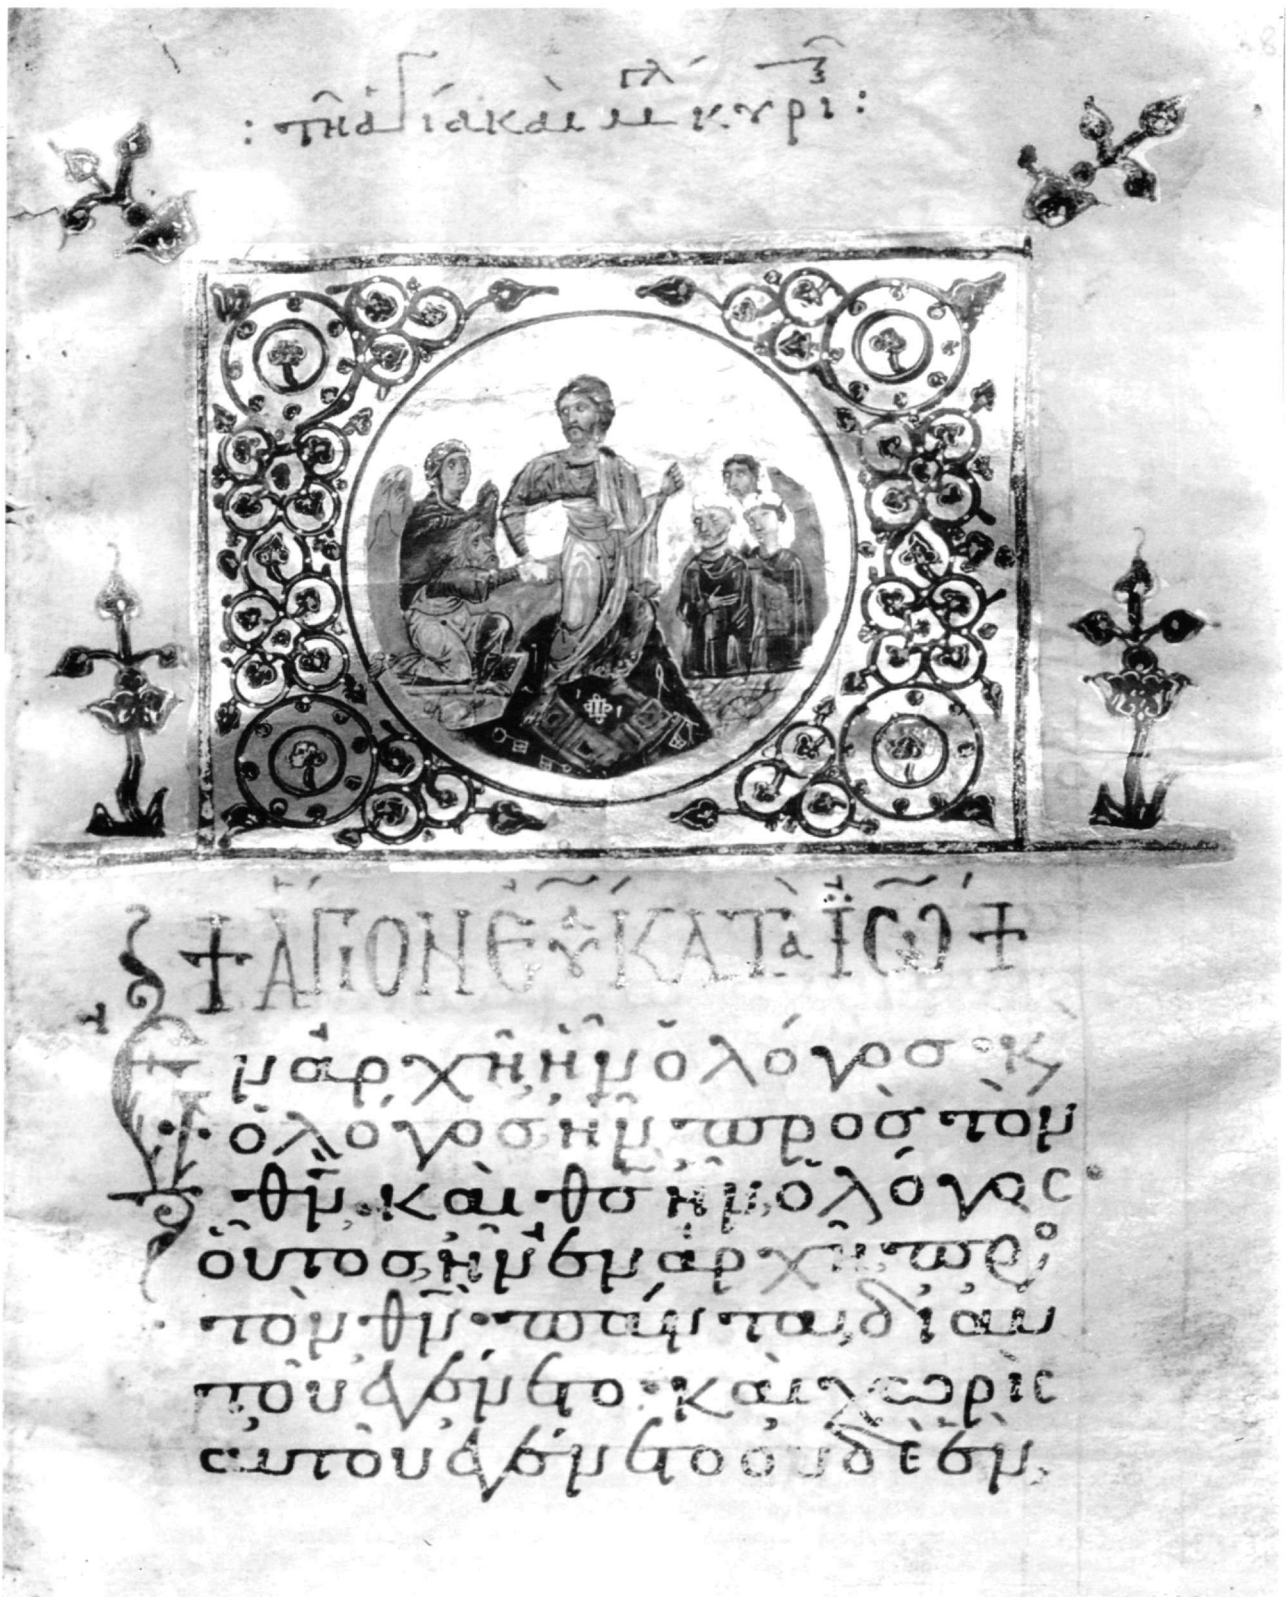 : τῆ ἁγία καὶ μ κυρι :
+ ἍΓΙΟΝ ΕΥ ΚΑΤὰ ἸΩ +
Ἐν ἀρχῆ ἦν ὁ λόγοσ · κ
ὁ λόγοσ, ἦν πρὸσ τὸν
θν, καὶ θσ ἦν ὁ λόγος·
οὗτοσ, ἦν ἐν ἀρχῆ, πρ
τὸν θν· πάντα, δι' αυ
τοῦ ἐγένετο · καὶ χωρὶς
αυτοῦ ἐγένετο οὐδὲ ἕν,